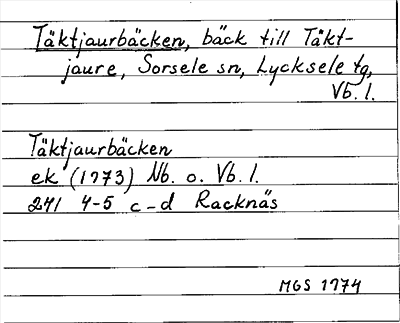 Täktjaurbäcken, bäck till Täkt-
jaure, Sorsele sn, Lycksele tg,
Vb. l.
Täktjaurbäcken
ek (1973) Nb. o. Vb. l.
241 4-5 c-d Racknäs
MGS 1974